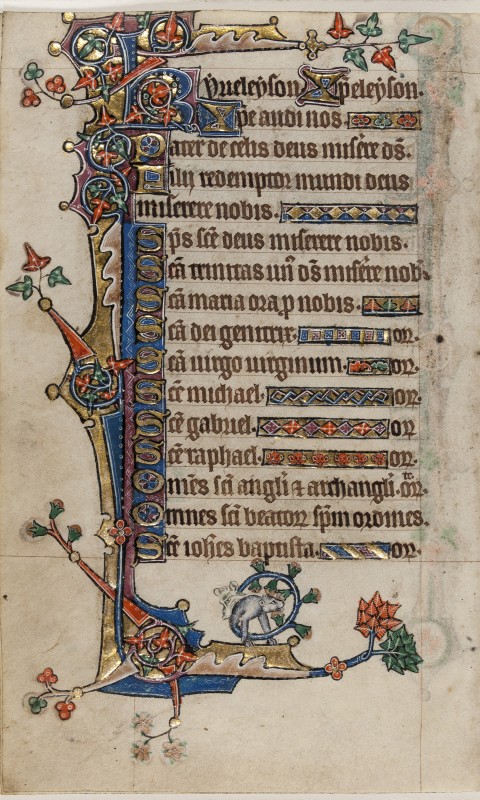 Kyrieleyson Xpeleyson.
Xpe audi nos.
Pater de celis deus misere ds.
Filii redemptor mundi deus
miserere nobis.
Sps sce deus miserere nobis.
Sca trinitas un ds misere nob.
Sca maria ora p nobis.
Sca dei genitrix. or.
Sca uirgo uirginum. or.
Sce michael. or.
Sce gabriel. or.
Sce raphael. or.
Omes sci angli ⁊ archangli. or.
Omnes sci beator spm ordines.
Sce iohes baptista. or.